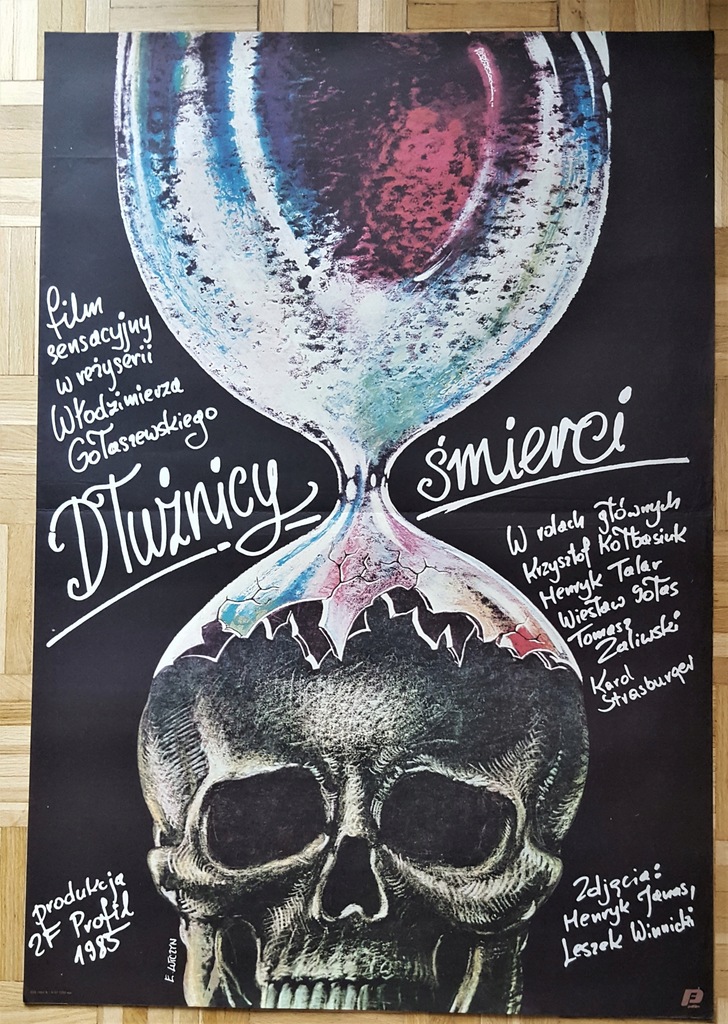 film
sensacyjny
w reżyserii
Włodzimierza
Gołaszewskiego
Dłużnicy śmierci
W rolach głównych
Krzysztof Kołbasiuk
Henryk Talar
Wiesław Gołas
Tomasz
Zaliwski
Karol
Strasburger
produkcja
ZF Profil
1985
Zdjęcia:
Henryk Janas,
Leszek Winnicki
E. LUTCZYN